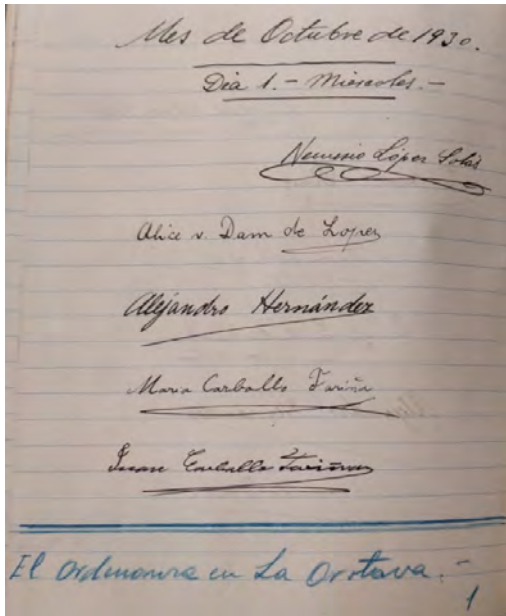 Mes de Octubre de 1930.
Día 1.- Miércoles.-
Nemesio López Solís
Alice v. Dam de Lopez
Alejandro Hernández
Maria Carballo Fariña
Juan Carballo Fariña
El Ordenanza en La Orotava.-
1